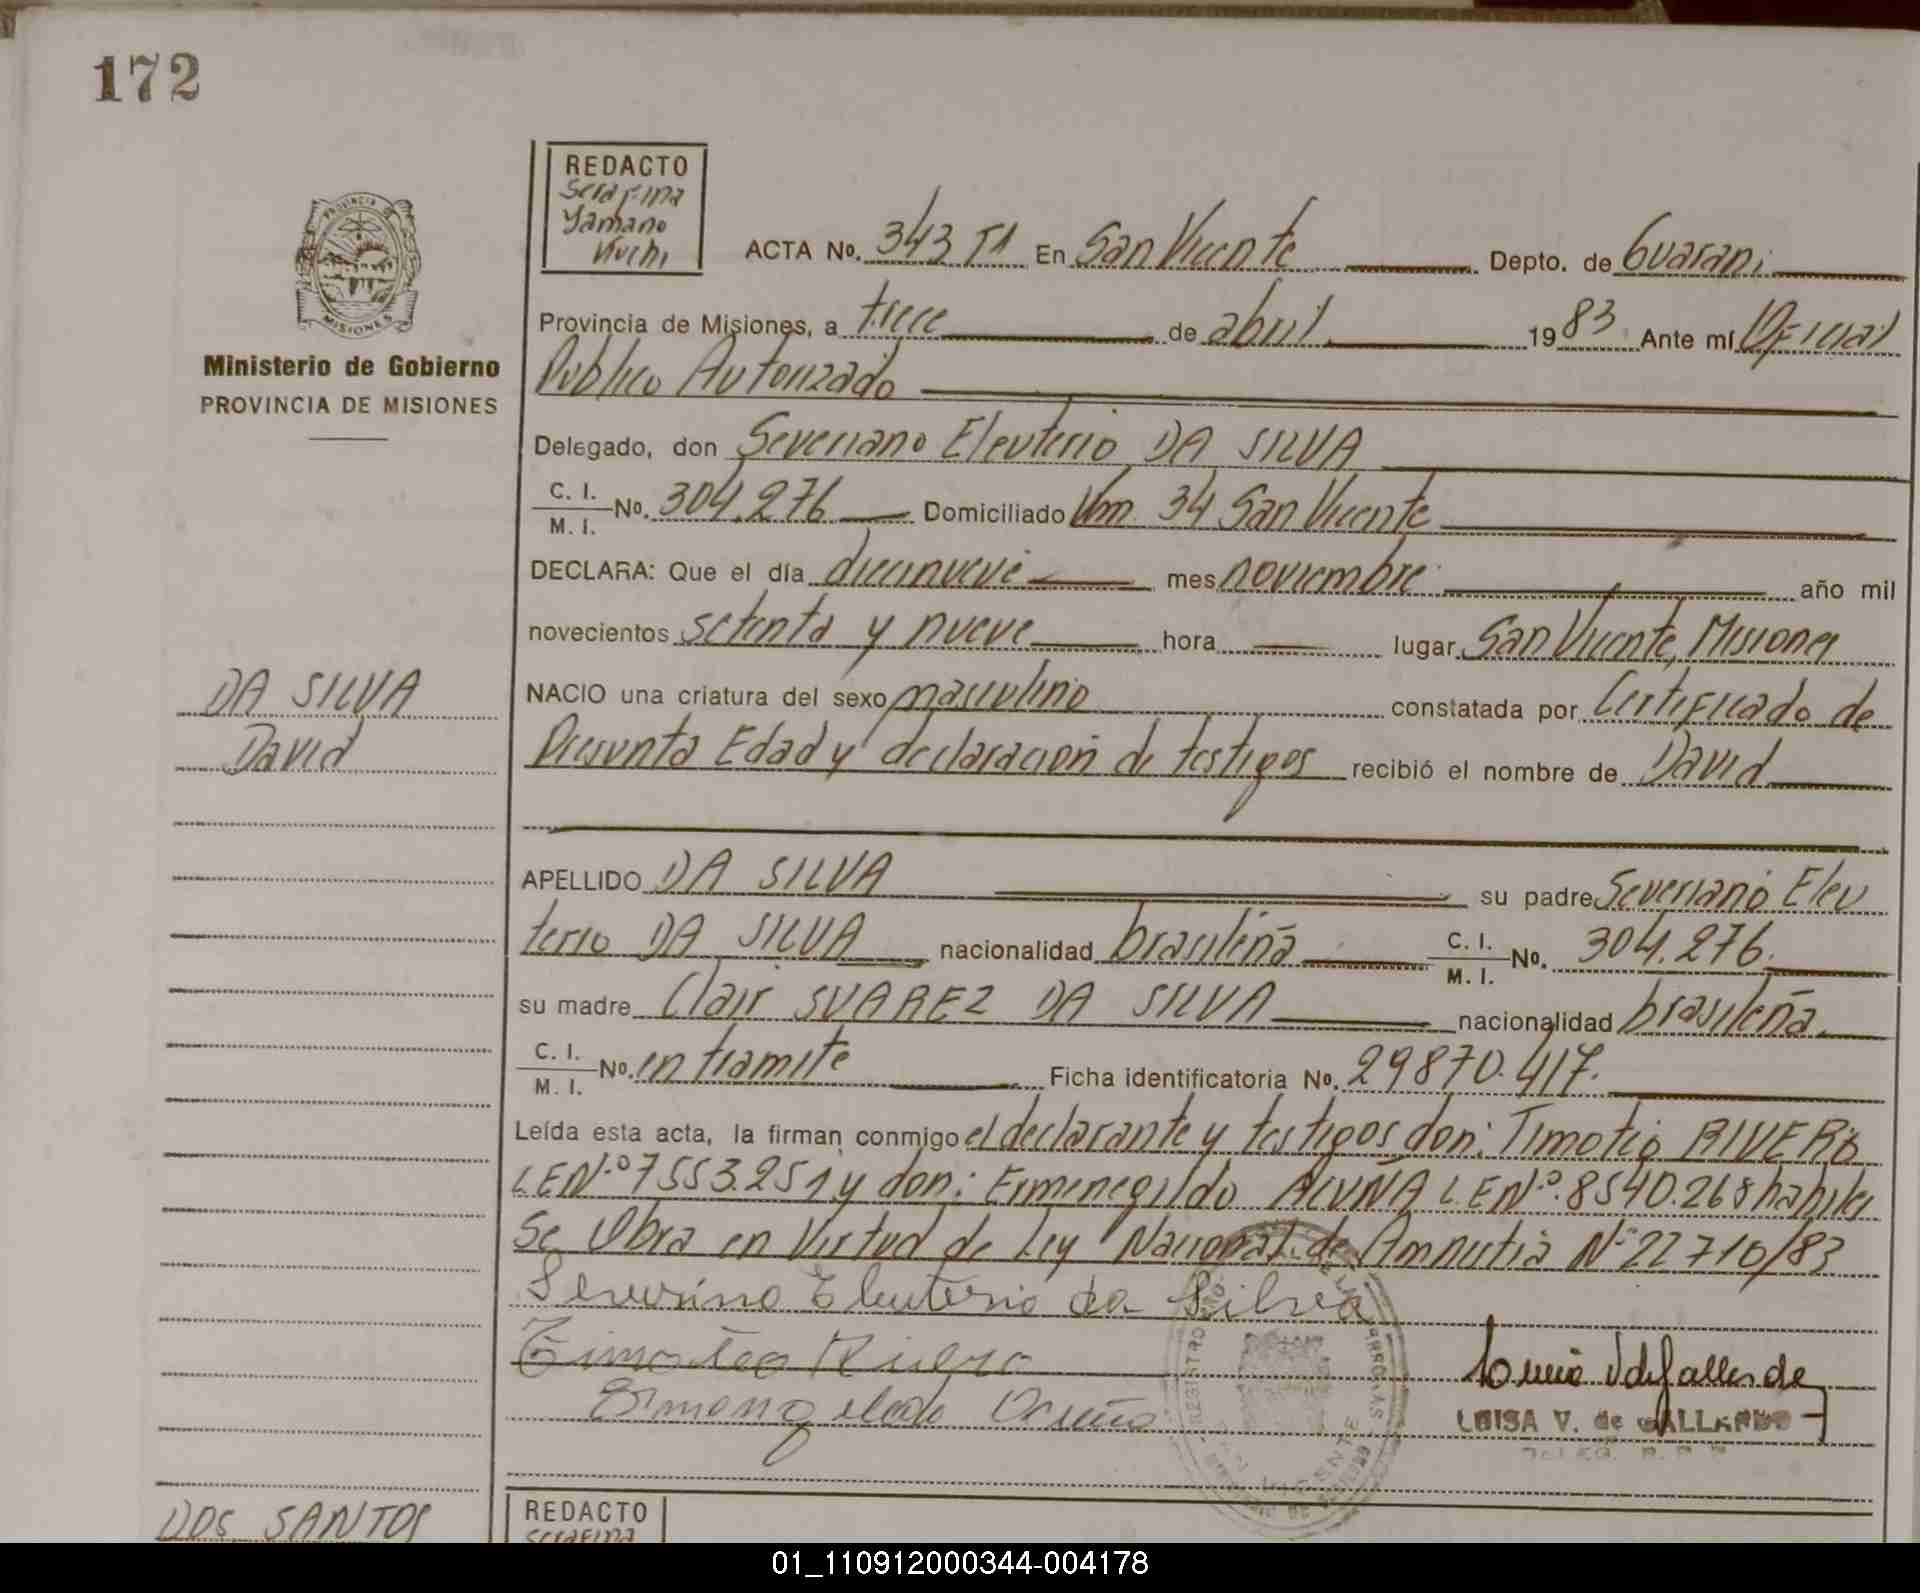 172
REDACTO
Serafina
Yamano
Kuchi
ACTA No. 343 T1 En San Vicente Depto. de Guarani
Provincia de Misiones, a trece de abril 1983 Ante mí Oficial
Publico Autorizado
PROVINCIA DE
MISIONES
Ministerio de Gobierno
PROVINCIA DE MISIONES
Delegado, don Severiano Eleuterio DA SILVA
C. I.
M. I. No. 304.276 Domiciliado Km. 34 San Vicente
DECLARA: Que el día diecinueve mes noviembre año mil
novecientos setenta y nueve hora lugar San Vicente, Misiones
DA SILVA
David
NACIO una criatura del sexo masculino constatada por Certificado de
Presunta Edad y declaración de testigos recibió el nombre de David
APELLIDO DA SILVA su padre Severiano Eleu
terio DA SILVA nacionalidad brasileña C. I.
M. I. No. 304.276.
su madre Clair SUAREZ DA SILVA nacionalidad brasileña.
C. I.
M. I. No. en tramite Ficha identificatoria No. 29870.417.
Leída esta acta, la firman conmigo el declarante y testigos don: Timoteo RIVERO
L.E.Nº 7553.251 y don: Ermenegildo ACUÑA L.E.Nº. 8540.268 habiles
Se Obra en Virtud de Ley Nacional de Amnistia Nº 22710/83
Severino Eleuterio da Silva
Timoteo Rivero
LUISA V. de GALLARDO
SAN VICENTE
DOS SANTOS
REDACTO
Serafina
01_110912000344-004178